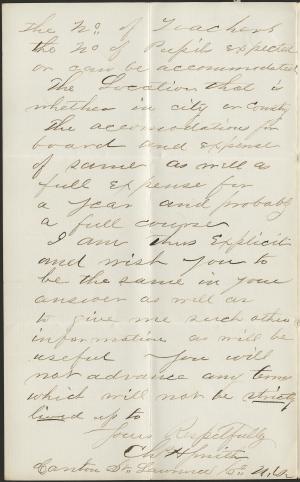 the No. of Teachers
the No of Pupils expected
or can be accommodated
The Location that is
whether in city or County
The accomodation for
board and expense
of same as well as
full expense for
a year and probably
a full course
I am thus Explicit
and wish you to
be the same in your
answer as well as
to give me such other
information as will be
useful - you will
not advance any terms
which will not be strictly
lived up to
Yours Respectfully
Smith
Canton St. Lawrence Co. N.Y.